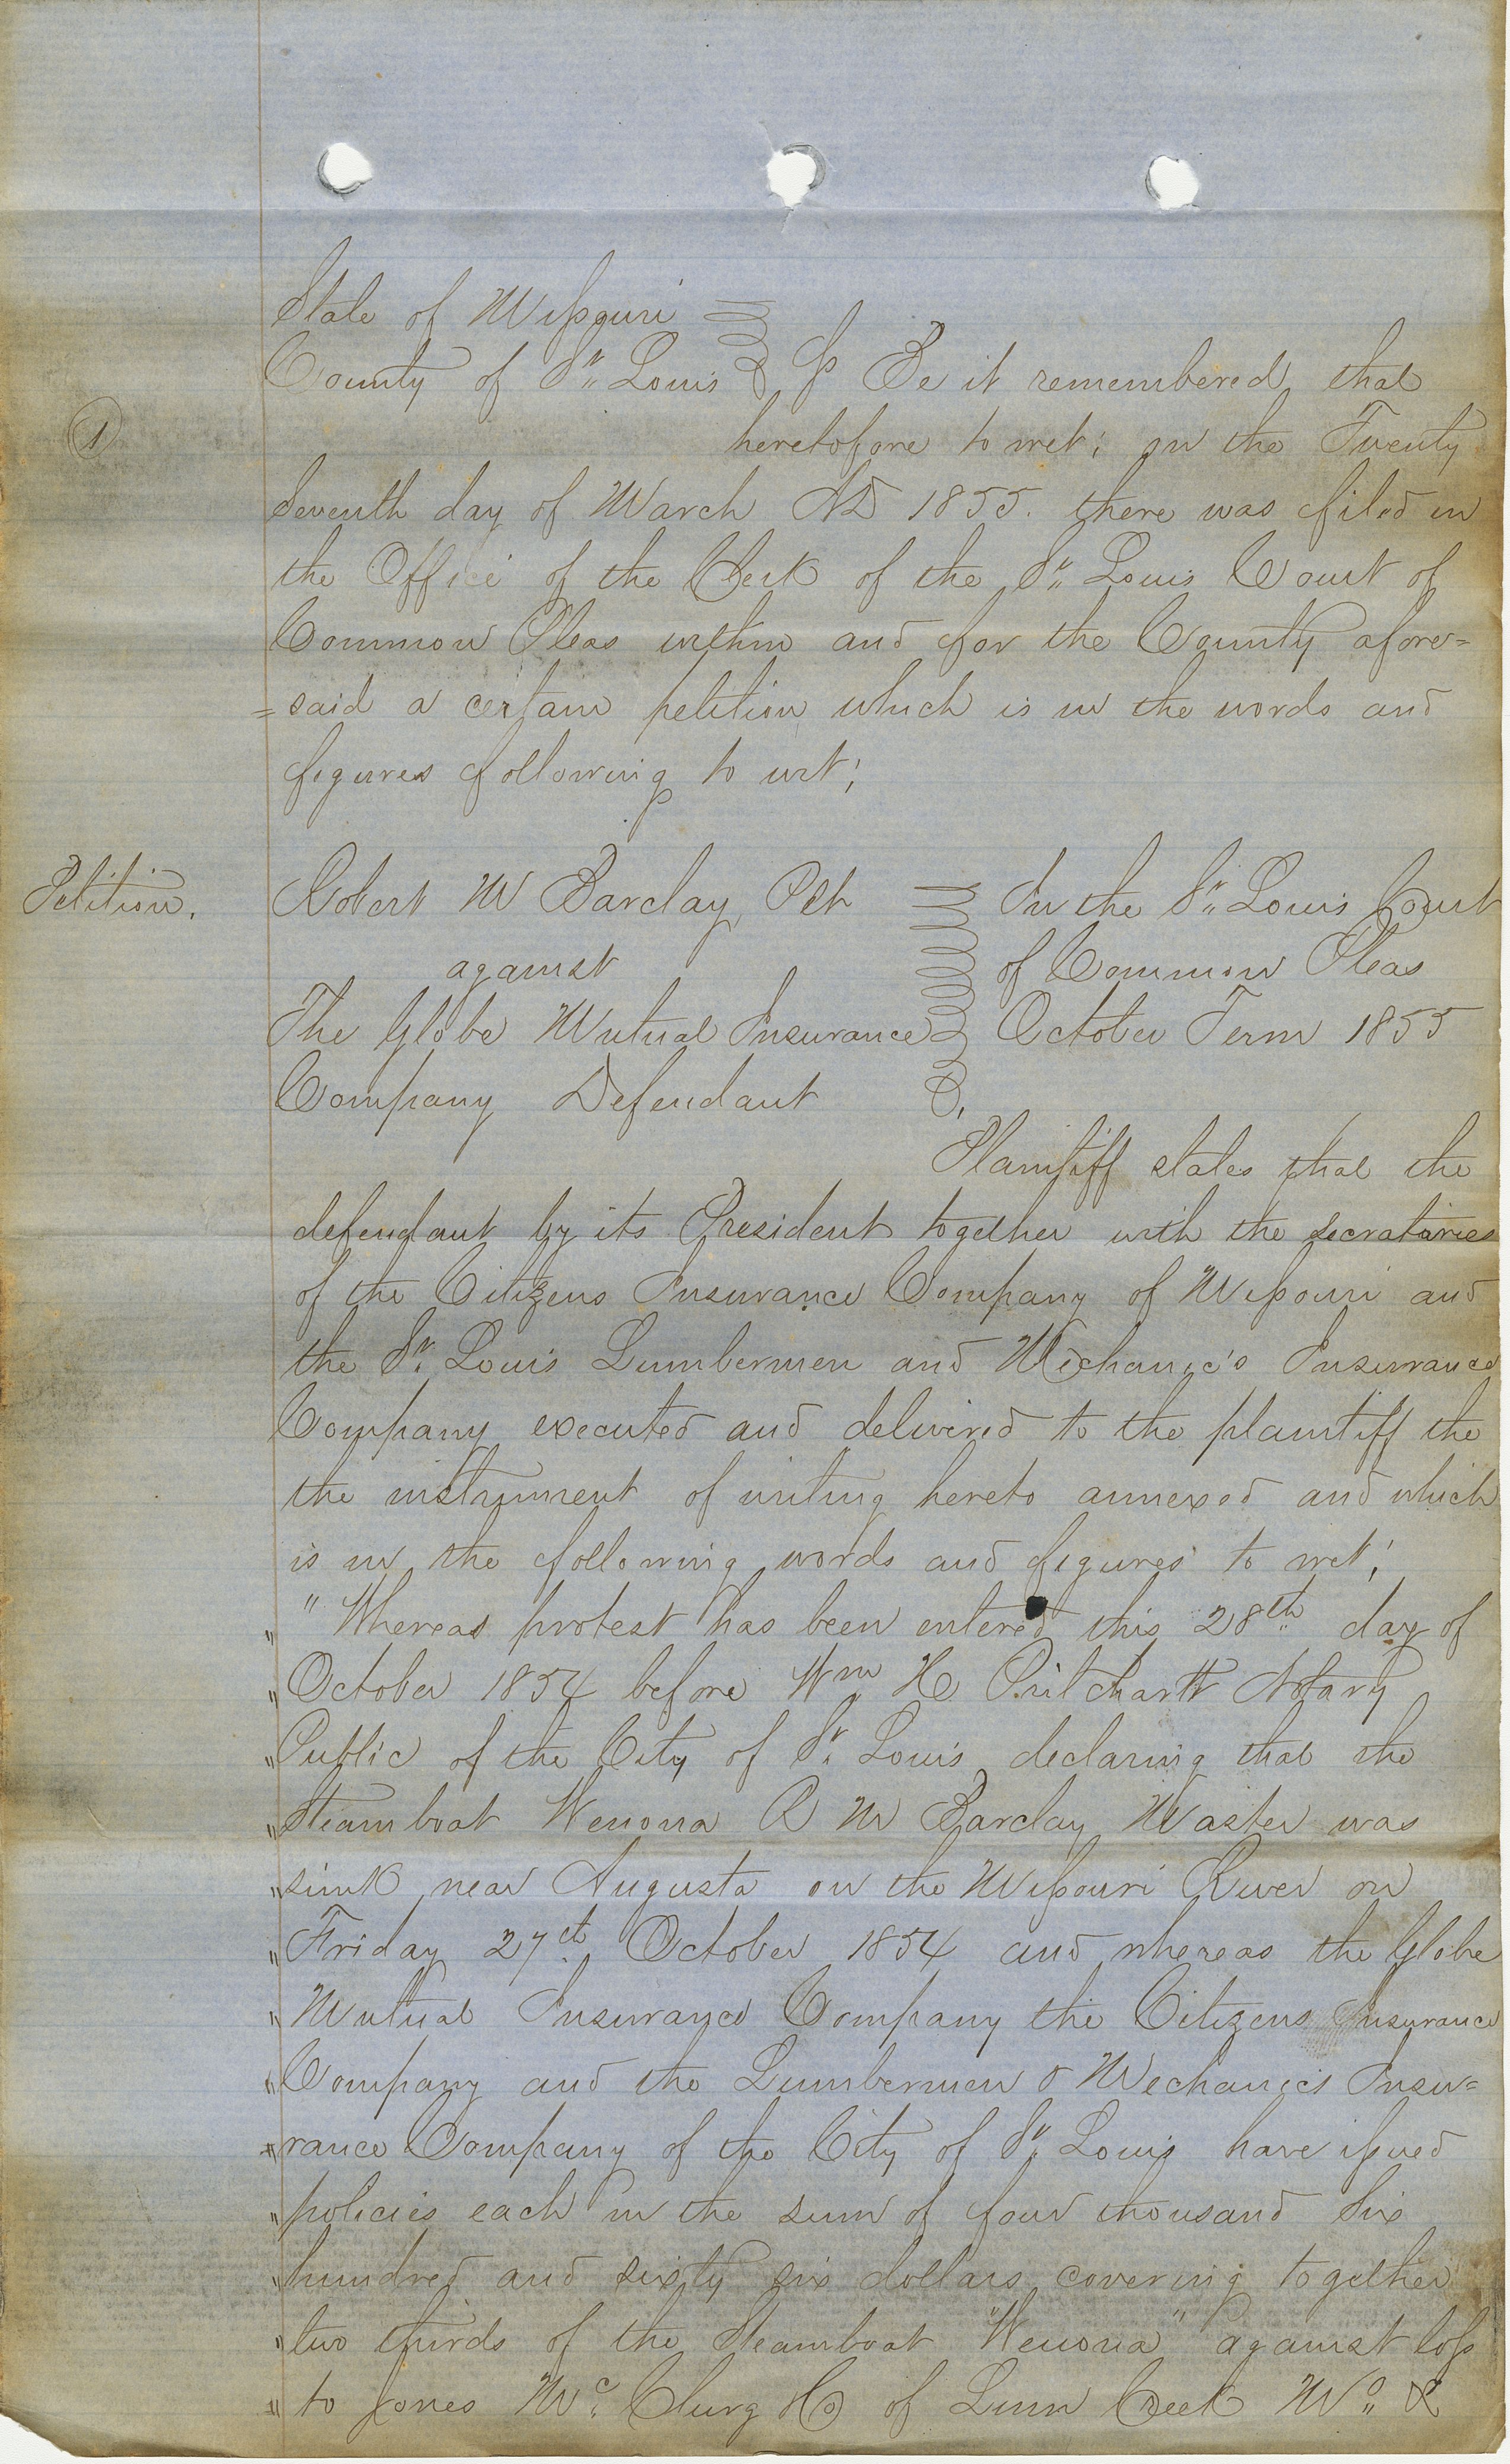 State of Missouri
County of St. Louis } ss Be it remembered that
1
heretofore to wit; on the Twenty
Seventh day of March AD 1855. there was filed in
the Office of the Clerk of the St. Louis Court of
Common Pleas within and for the County afore=
=said a certain petition which is in the words and
figures following to wit;
Petition.
Robert M Barclay, Plt } In the St. Louis Court
against of Common Pleas
The Globe Mutual Insurance October Term 1855
Company Defendant
Plaintiff states that the
defendant by its President together with the secrataries
of the Citizens Insurance Company of Missouri and
the St. Louis Lumbermen and Mechanic's Insurance
Company executed and delivered to the plaintiff the
the instrument of writing hereto annexed and which
is in the following words and figures to wit;
" "Whereas protest has been entered this 28th day of
" October 1854 before Wm H Pritchartt Notary
" Public of the City of St. Louis declaring that the
" Steamboat Wenona R M Barclay Master was
" sunk near Augusta on the Missouri River on
" Friday 27th October 1854 and whereas the Globe
" Mutual Insurance Company the Citizens Insurance
" Company and the Lumbermen & Mechanics Insu=
"=rance Company of the City of St. Louis have issued
" policies each in the sum of four thousand Six
" hundred and sixty six dollars covering together
" two thirds of the Steamboat "Wenona" against loss
" to Jones Mc. Clurg & Co of Linn Creek Mo. &